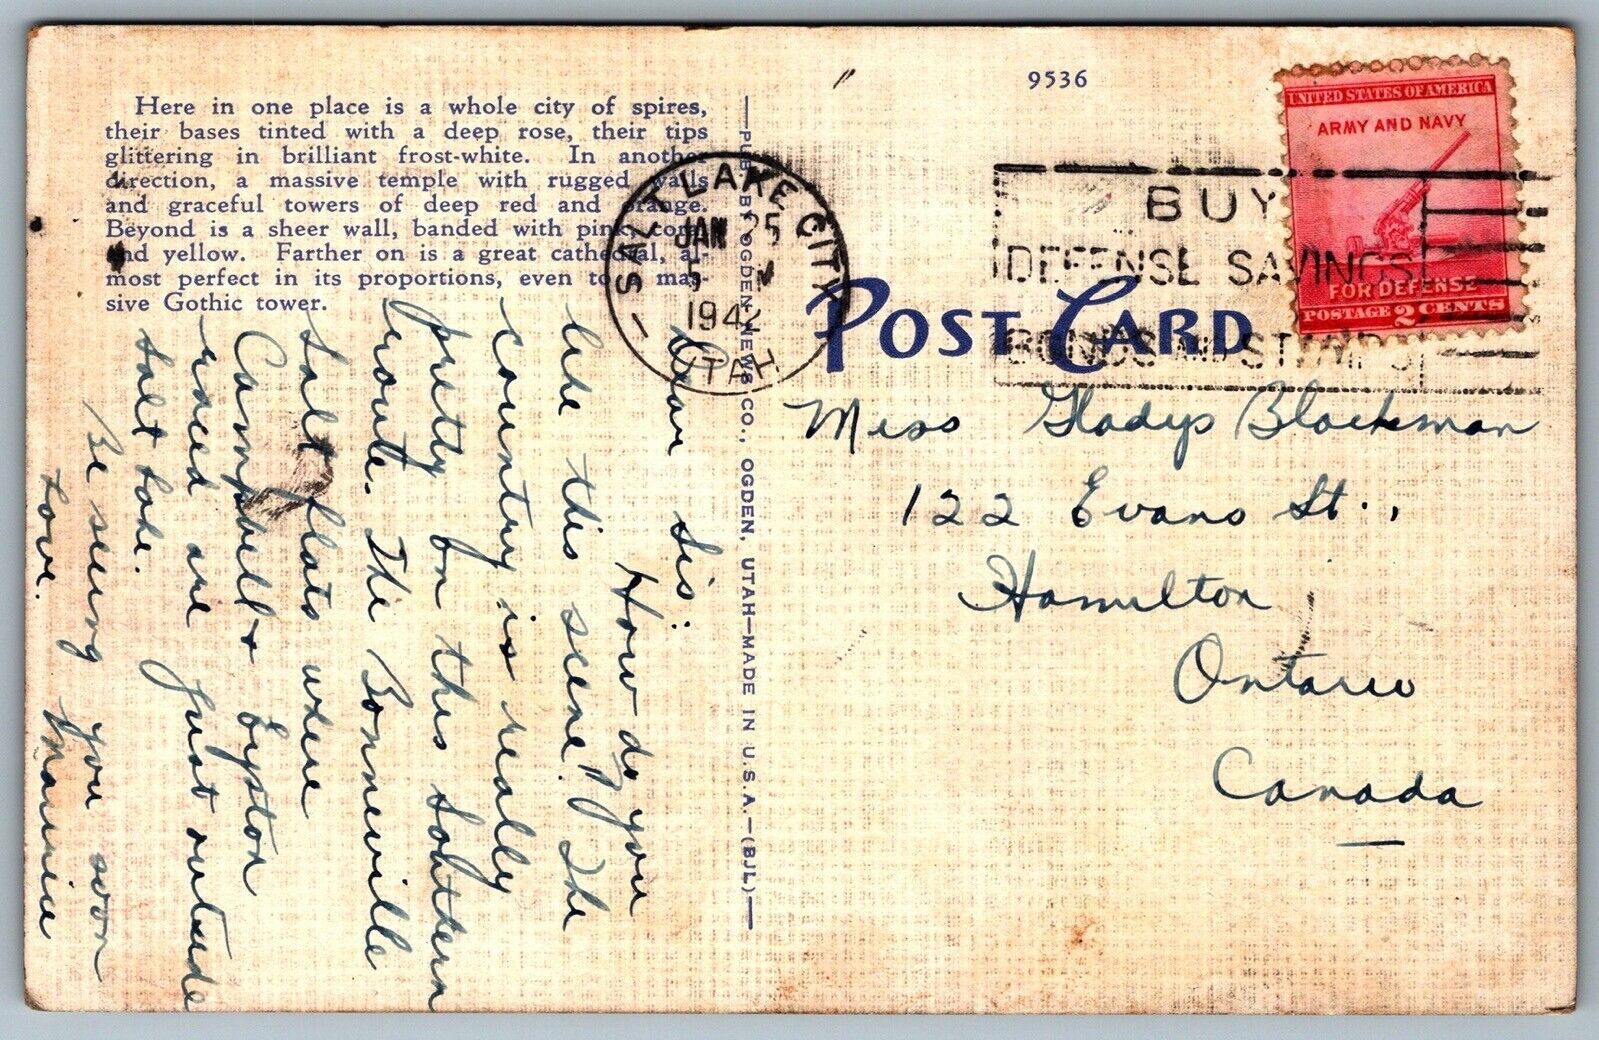 9536
Here in one place is a whole city of spires,
their bases tinted with a deep rose, their tips
glittering in brilliant frost-white. In another
direction, a massive temple with rugged walls
and graceful towers of deep red and orange.
Beyond is a sheer wall, banded with pink, coral
and yellow. Farther on is a great cathedral, al-
most perfect in its proportions, even to a mas-
sive Gothic tower.
—PUB. BY OGDEN NEWS CO., OGDEN, UTAH—MADE IN U.S.A.—(BJL)—
SALT LAKE CITY
JAN 25
5 M
1942
UTAH
BUY
DEFENSE SAVINGS
BONDS AND STAMPS
UNITED STATES OF AMERICA
ARMY AND NAVY
FOR DEFENSE
POSTAGE 2 CENTS
POST CARD
Miss Gladys Blackman
122 Evans St.,
Hamilton
Ontario
Canada
Dear Sis:
How do you
like this scene? The
country is really
pretty on this Southern
route. The Bonneville
Salt flats where
Campbell & Eyston
raced are just outside
Salt Lake.
Be seeing you soon
Love.